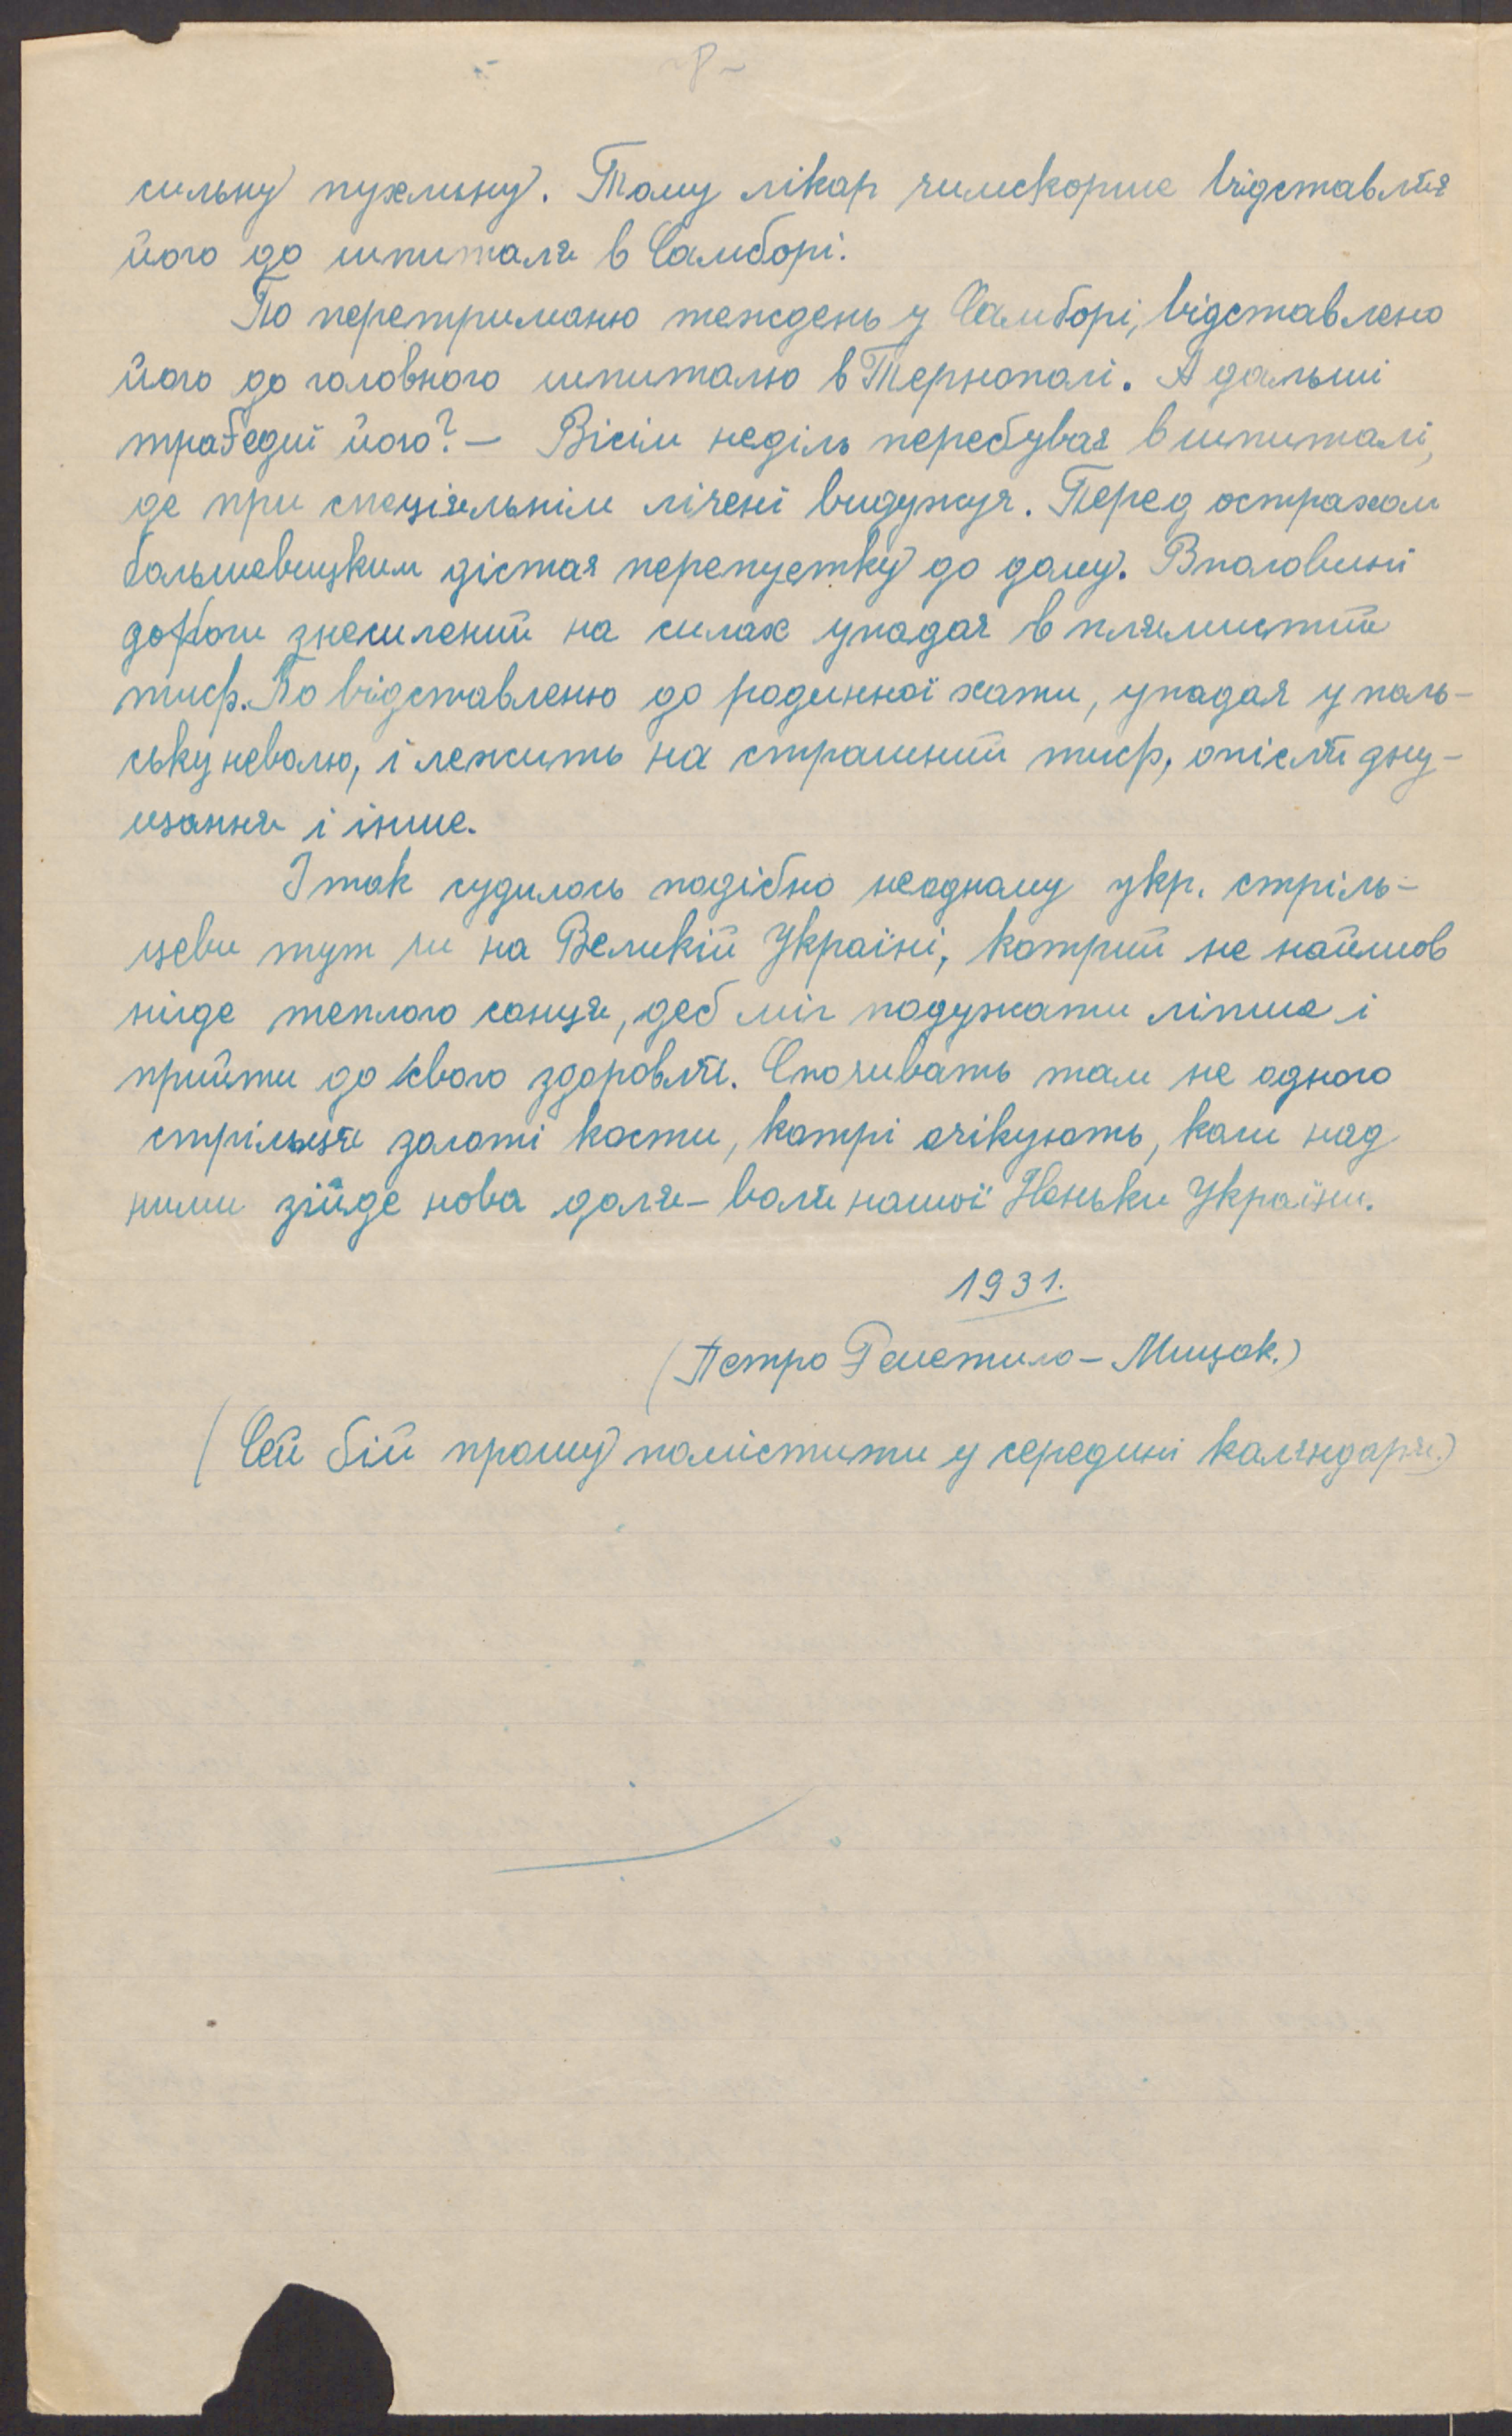 -8-
сильну пухлину. Тому лікар чимскорше відставляє
його до шпиталя в Самборі.
По перетриманю тенждень у Самборі, відставлено
його до головного шпиталю в Тернополі. А дальші
траґедиї його? — Вісім неділь перебуває в шпиталі,
де при спеціяльнім лічені видужує. Перед острахом
большевицким дістає перепустку до дому. В половині
дороги знесилений на силах упадає в плямистий
тиф. По відставленю до родинної хати, упадає у поль-
ську неволю, і лежить на страшний тиф, опісля
і інше.
І так судилось подібно неодному укр. стріль-
цеви тут чи на Великій Україні, котрий не найшов
нігде теплого сонця, деб міг подужати ліпше і
прийти до свого здоровля. Спочивать там не одного
стрільця золоті кости, котрі очікують, коли над
ними зійде нова доля – воля нашої Неньки України.
1931.
(Петро – Мицак.)
(Сей бій прошу помістити у середині календаря.)